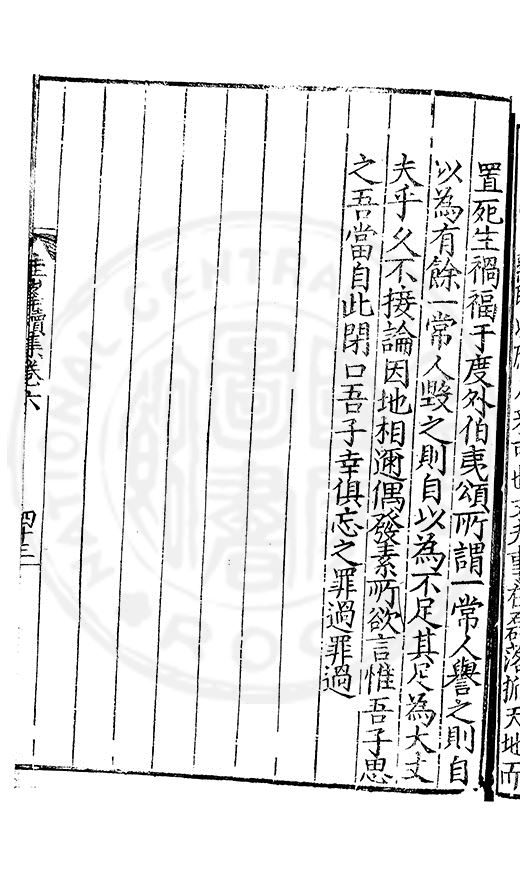 置死生禍福于度外伯夷頌所謂一常人譽之則自
以為有餘一常人毀之則自以為不足其足為大丈
夫乎久不接論因地相邇偶發素所欲言惟吾子思
之吾當自此閉口吾子幸俱忘之罪過罪過
續集卷六
四十三
NATIONAL CENTRAL